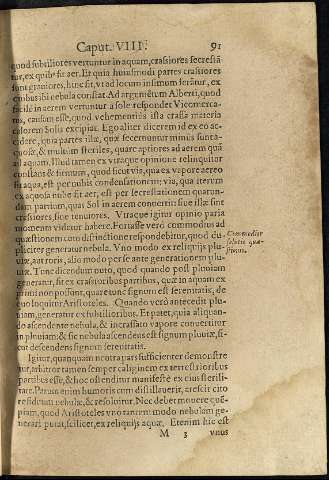 Caput. VIII. 91
quod subtiliores vertuntur in aquam, crassiores secrestã
tur, ex quibꝰ fit aer. Et quia huiusmodi partes crassiores
sunt grauiores, hinc fit, vt ad locum infimum ferãtur, ex
quibus ibi nebula constat. Ad argumẽtum Alberti, quod
facilè in aerem vertuntur à sole respondet Vicomerca-
tus, eandem esse, quod vehementiùs ista crassa materia
calorem Solis excipiat. Ego aliter dicerem id ex eo ac-
cidere, quia partes illæ, quæ secernuntur minùs sunt a-
quosæ, & multùm steriles, quare aptiores ad aerem quã
ad aquam. Illud tamen ex vtraque opinione relinquitur
constans & firmum, quod sicut via, qua ex vapore aereo
fit aqua, est per nubis condensationem: via, qua iterum
ex aquosa nube fit aer, est per secrestationem quarun-
dam partium, quas Sol in aerem conuertit: siue illæ sint
crassiores, siue tenuiores. Vtraque igitur opinio paria
momenta videtur habere. Fortasse verò commodiùs ad
quæstionem cum distinctione respondebitur, quod du-
pliciter generatur nebula. Vno modo ex reliquijs plu-
uiæ, aut roris, alio modo per se ante generationem plu-
uiæ. Tunc dicendum puto, quod quando post pluuiam
generatur, fit ex crassioribus partibus, quæ in aquam ex
primi non possunt, quare tunc signum est serenitatis, de
quo loquitur Aristoteles. Quando verò antecedit plu-
uiam, generatur ex subtilioribus. Et patet, quia aliquan-
do ascendente nebula, & incrassato vapore conuertitur
in pluuiam: & sic nebula ascendens est signum pluuiæ, si-
cut descendens signum serenitatis.
Igitur, quanquam neutra pars sufficienter demonstre
tur, arbitror tamen semper caliginem ex terrestrioribus
partibus esse, & hoc ostenditur manifestè ex eius sterili-
tate. Parum enim humoris cum distillauerit, arescit citò
residuum nebulæ, & resoluitur. Nec debet mouere quẽ-
piam, quod Aristoteles vno tantùm modo nebulam ge-
nerari putat, scilicet, ex reliquijs aquæ. Etenim hîc est
M 3 vnus
Commodior
solutio quæ-
stionis.